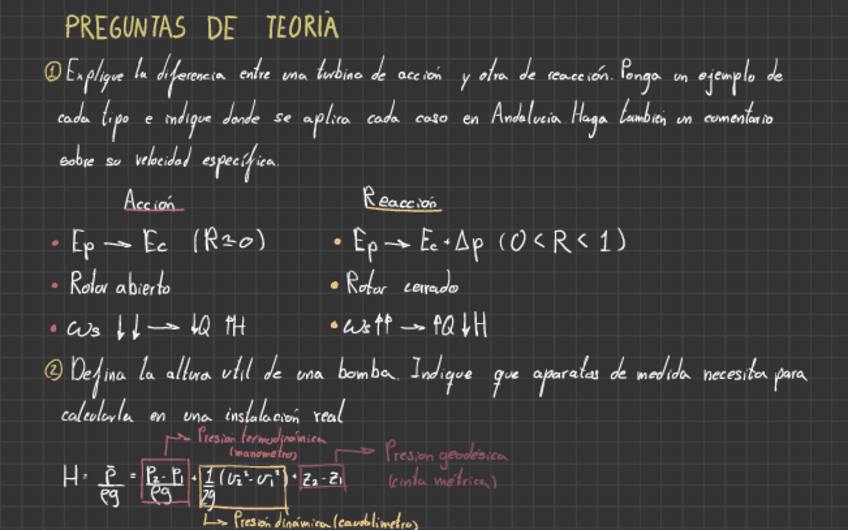 PREGUNTAS DE TEORÍA
① Explique la diferencia entre una turbina de acción y otra de reacción. Ponga un ejemplo de
cada tipo e indique donde se aplica cada caso en Andalucia. Haga también un comentario
sobre su velocidad específica.
Acción Reacción
• Ep → Ec (R≃0) • Ep → Ec + Δp (0 < R < 1)
• Rotor abierto • Rotor cerrado
• ωs ↓↓ → ↓Q ↑H • ωs ↑↑ → ↑Q ↓H
② Defina la altura util de una bomba. Indique que aparatos de medida necesita para
calcularla en una instalación real
Presión termodinámica
(manómetro)
Presión geodésica
(cinta métrica)
H = p/ρg = (P₂ - P₁)/ρg + 1/2g (v₂² - v₁²) + z₂ - z₁
Presión dinámica (caudalímetro)